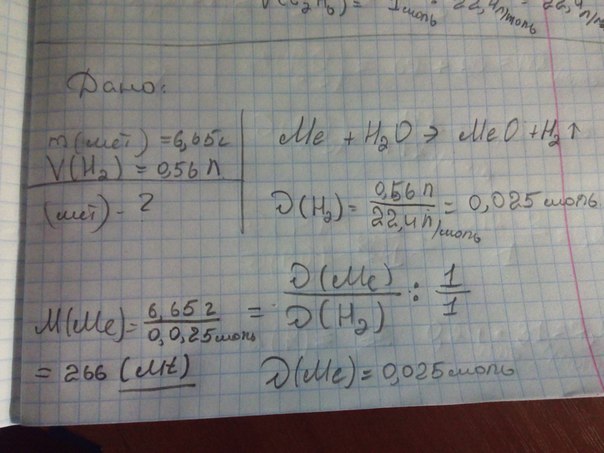 V(C₂H₆) = 1моль · 22,4л/моль = 22,4
Дано:
m(мет) = 6,65г
V(H₂) = 0,56 л
(мет) - ?
Me + H₂O → MeO + H₂↑
ν(H₂) = 0,56 л / 22,4 л/моль = 0,025 моль
M(Me) = 6,65 г / 0,0,25 моль = ν(Me) / ν(H₂) : 1/1
= 266 (Mt)
ν(Me) = 0,025 моль